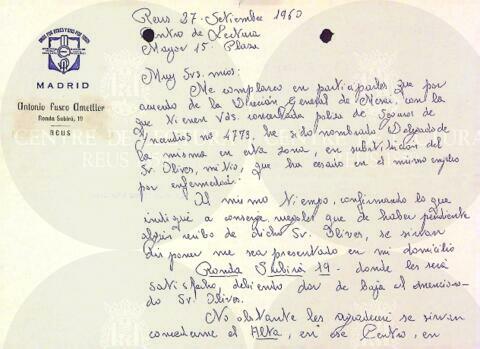 MADRID
Antonio Fusco Amettller
Ronda Subirá, 19
REUS
Reus 27 Setiembre 1960
Centro de Lectura
Mayor 15. Plaza
Muy Srs. mios:
Me complazco en participarles que por
acuerdo de la Dirección General de Meras, con la
que tienen Vds. concertada póliza de Seguros de
Yncendios nº 4773, he sido nombrado Delegado de
la misma en esta zona, en substitución del
Sr. Olives, mi tio, que ha cesado en el mismo empleo
por enfermedad.
Al mismo tiempo, confirmando lo que
indiqué a conserje, ruegoles que de haber pendiente
algún recibo de dicho Sr. Olives, se sirvan
disponer me sea presentado en mi domicilio
Ronda Subirá 19 - donde les será
satisfecho, debiendo dar de baja el menciona-
do Sr. Olives.
No obstante les agradeceré se sirvan
concederme el Alta, en ese Centro, en